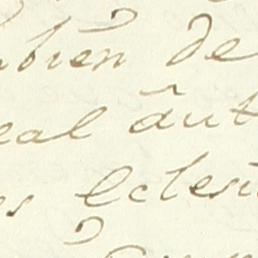 bien de
eal aut
es Eclesi